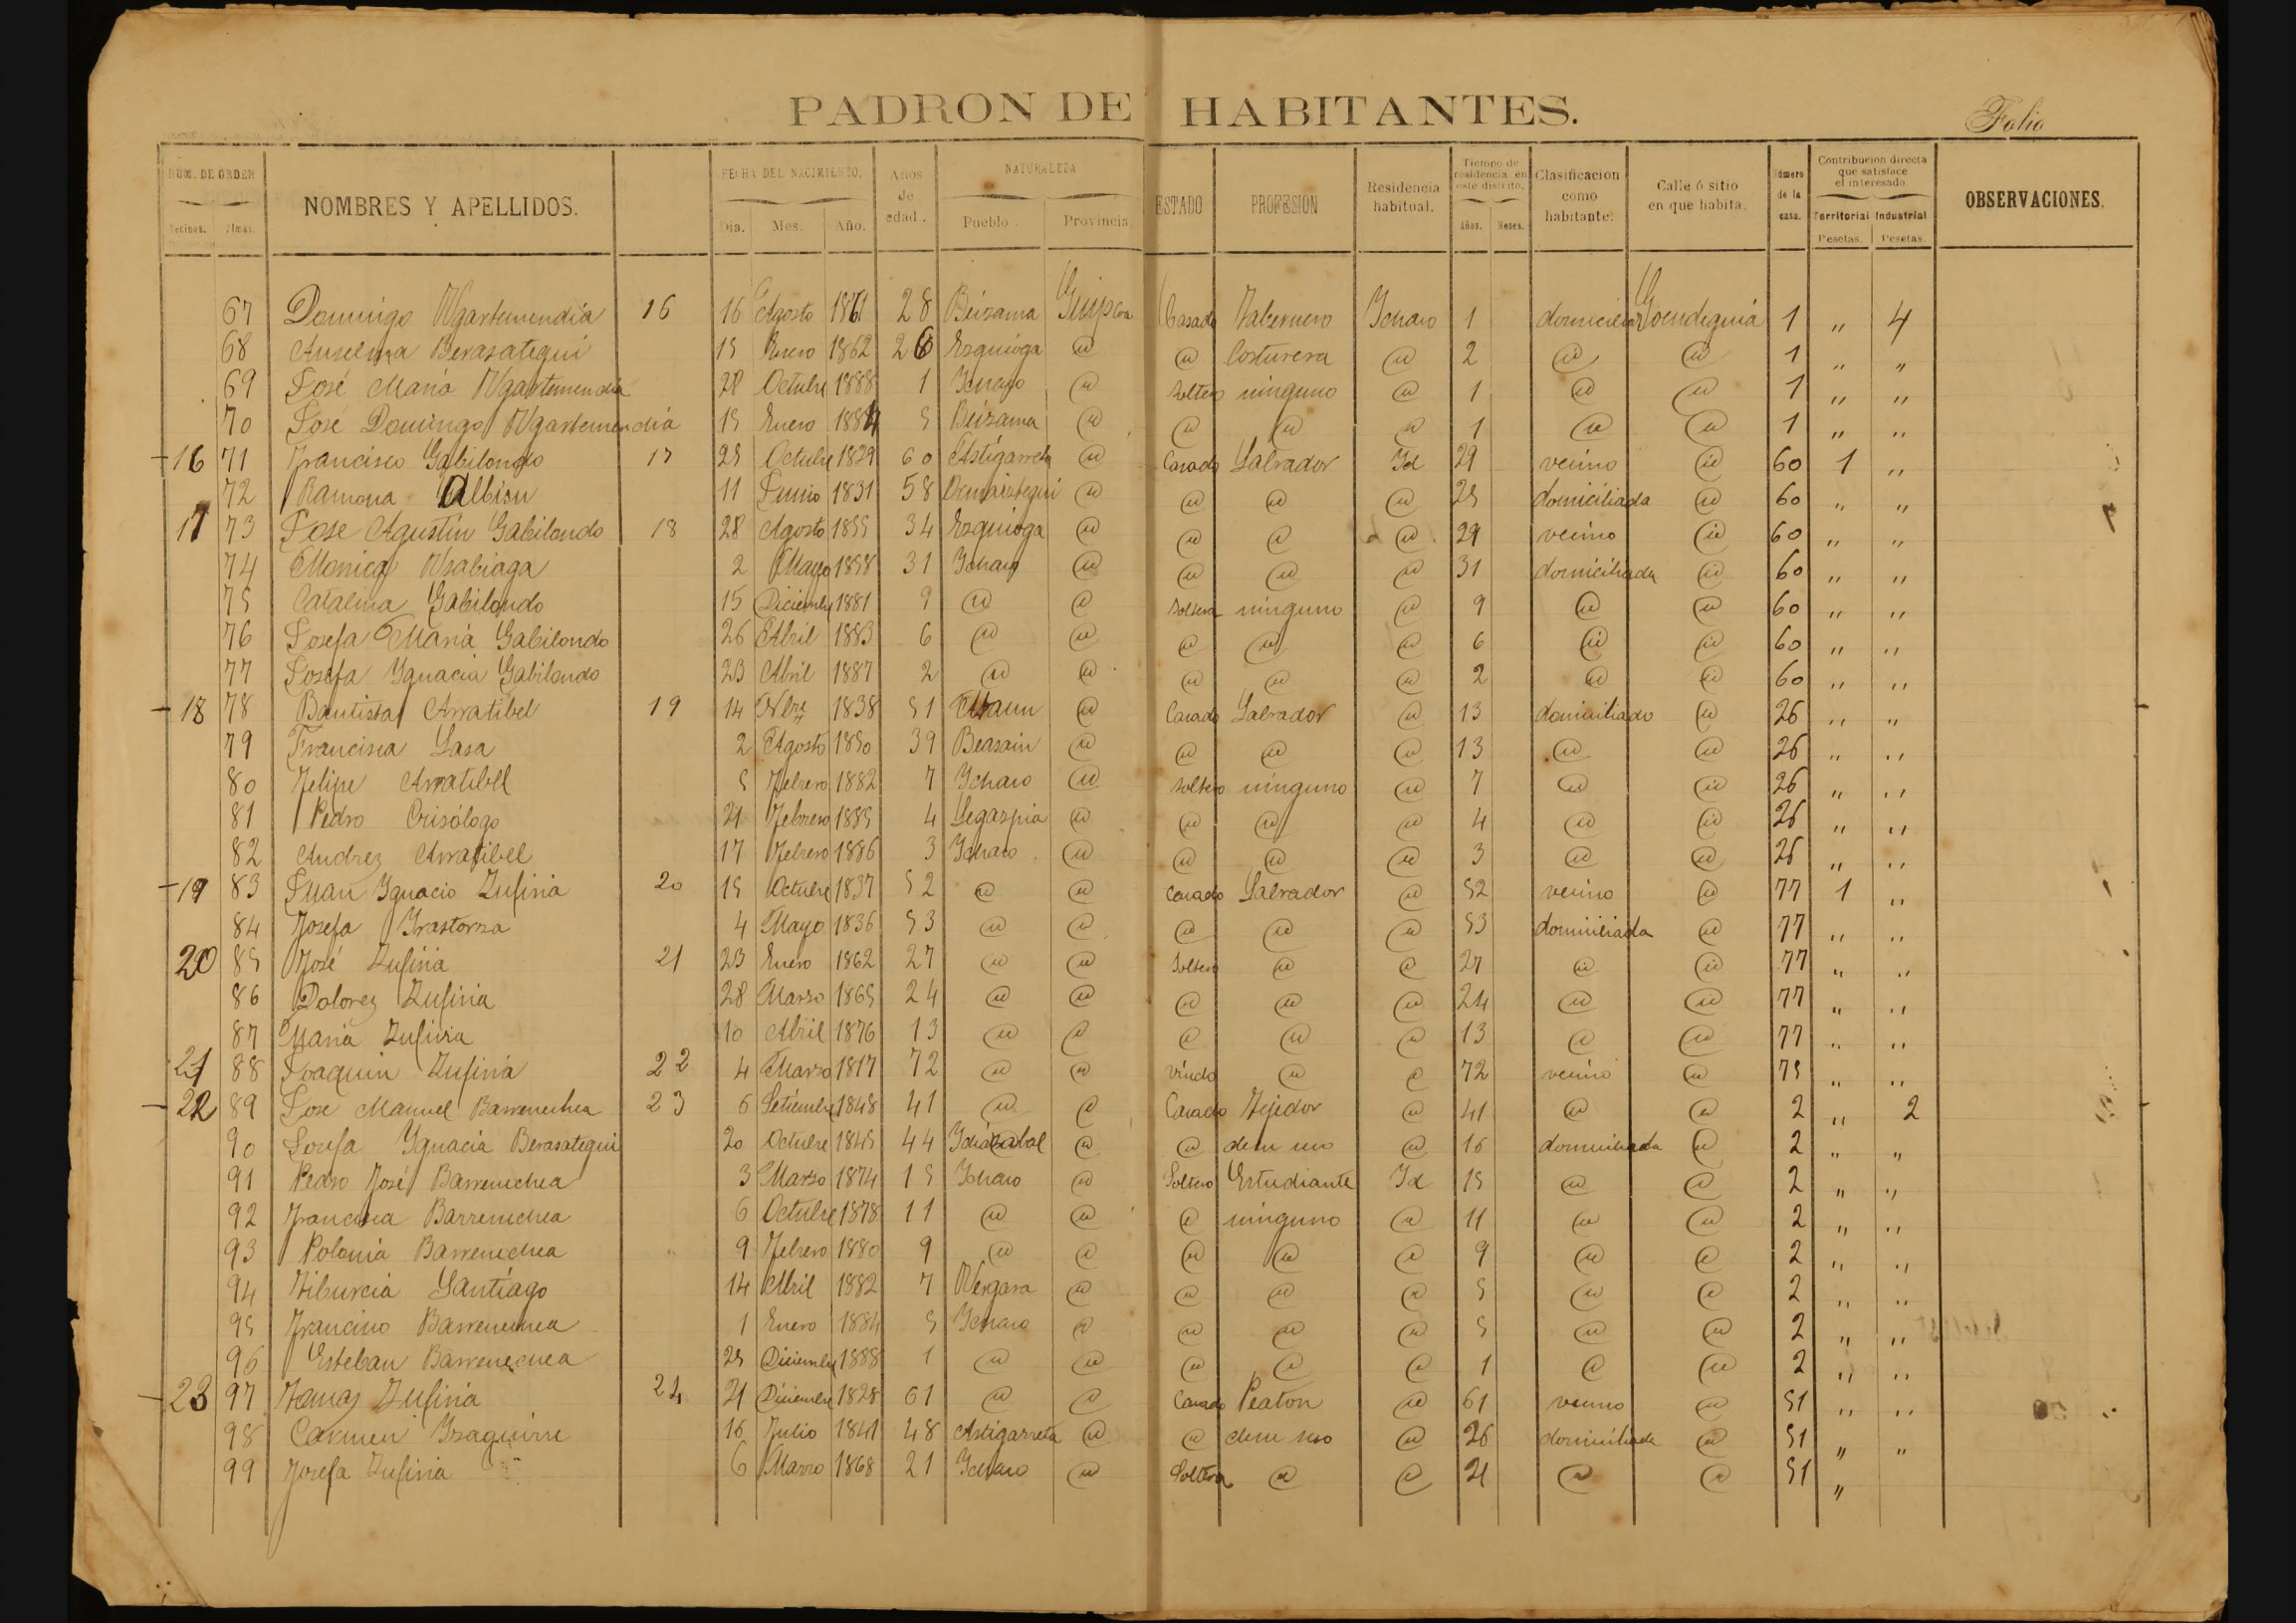 PADRON DE HABITANTES.
Folio
NÚM. DE ORDEN NOMBRES Y APELLIDOS. FECHA DEL NACIMIENTO. Años de edad. NATURALEZA ESTADO PROFESION Residencia habitual. Tiempo de residencia en este distrito. Clasificacion como habitante. Calle ó sitio en que habita. Número de la casa. Contribucion directa que satisface el interesado. OBSERVACIONES.
Vecinos. Almas. Dia. Mes. Año. Pueblo. Provincia. Años. Meses. Territorial Industrial
Pesetas. Pesetas.
67 Domingo Ugartemendia 16 16 Agosto 1861 28 Beizama Guipcoa Casado Tabernero Ichaso 1 Goendeguia 1 " 4
68 Anselma Berasategui 15 Enero 1862 26 Ezquioga @ @ Costurera @ 2 @ @ 1 " "
69 José Maria Ugartemendia 28 Octubre 1888 1 Ichaso @ Soltero ninguno @ 1 @ @ 1 " "
70 José Domingo Ugartemendia 15 Enero 1884 5 Beizama @ @ @ @ 1 @ @ 1 " "
16 71 Francisco Gabilondo 17 25 Octubre 1829 60 Astigarreta @ Casado Labrador Id 29 vecino @ 60 1 "
72 Ramona Albisu 11 Junio 1831 58 Ormaiztegui @ @ @ @ 25 domiciliada @ 60 " "
17 73 Jose Agustin Gabilondo 18 28 Agosto 1855 34 Ezquioga @ @ @ @ 29 vecino @ 60 " "
74 Monica Usabiaga 2 Mayo 1858 31 Ichaso @ @ @ @ 31 domiciliada @ 60 " "
75 Catalina Gabilondo 15 Diciembre 1881 9 @ @ Soltera ninguno @ 9 @ @ 60 " "
76 Josefa Maria Gabilondo 26 Abril 1883 6 @ @ @ @ @ 6 @ @ 60 " "
77 Josefa Ygnacia Gabilondo 23 Abril 1887 2 @ @ @ @ @ 2 @ @ 60 " "
18 78 Bautista Arratibel 19 14 Nbre 1838 51 Ataun @ Casado Labrador @ 13 domiciliado @ 26 " "
79 Francisca Lasa 2 Agosto 1850 39 Beasain @ @ @ @ 13 @ @ 26 " "
80 Felipe Arratibel 5 Febrero 1882 7 Ichaso @ Soltero ninguno @ 7 @ @ 26 " "
81 Pedro Crisólogo 21 Febrero 1885 4 Legazpia @ @ @ @ 4 @ @ 26 " "
82 Andrez Arratibel 17 Febrero 1886 3 Ichaso @ @ @ @ 3 @ @ 26 " "
19 83 Juan Ygnacio Zufiria 20 15 Octubre 1837 52 @ @ Casado Labrador @ 52 vecino @ 77 1 "
84 Josefa Yrastorza 4 Mayo 1836 53 @ @ @ @ @ 53 domiciliada @ 77 " "
20 85 José Zufiria 21 23 Enero 1862 27 @ @ Soltero @ @ 27 @ @ 77 " "
86 Dolorez Zufiria 28 Marzo 1865 24 @ @ @ @ @ 24 @ @ 77 " "
87 Maria Zufiria 10 Abril 1876 13 @ @ @ @ @ 13 @ @ 77 " "
21 88 Joaquin Zufiria 22 4 Marzo 1817 72 @ @ Viudo @ @ 72 vecino @ 75 " "
22 89 Jose Manuel Barrenechea 23 6 Setiembre 1848 41 @ @ Casado Tejedor @ 41 @ @ 2 " 2
90 Josefa Ygnacia Berasategui 20 Octubre 1845 44 Idiazabal @ @ de su sexo @ 16 domiciliada @ 2 " "
91 Pedro José Barrenechea 3 Marzo 1874 15 Ichaso @ Soltero Estudiante Id 15 @ @ 2 " "
92 Francisca Barrenechea 6 Octubre 1878 11 @ @ @ ninguno @ 11 @ @ 2 " "
93 Polonia Barrenechea 9 Febrero 1880 9 @ @ @ @ @ 9 @ @ 2 " "
94 Tiburcia Santiago 14 Abril 1882 7 Vergara @ @ @ @ 5 @ @ 2 " "
95 Francisco Barrenechea 1 Enero 1884 5 Ichaso @ @ @ @ 5 @ @ 2 " "
96 Esteban Barrenechea 25 Diciembre 1888 1 @ @ @ @ @ 1 @ @ 2 " "
23 97 Zufiria 24 21 Diciembre 1828 61 @ @ Casado Peaton @ 61 vecino @ 51 " "
98 Carmen Yzaguirre 16 Julio 1841 48 Astigarreta @ @ de su sexo @ 26 domiciliada @ 51 " "
99 Josefa Zufiria 6 Marzo 1868 21 Ichaso @ Soltera @ @ 21 @ @ 51 "